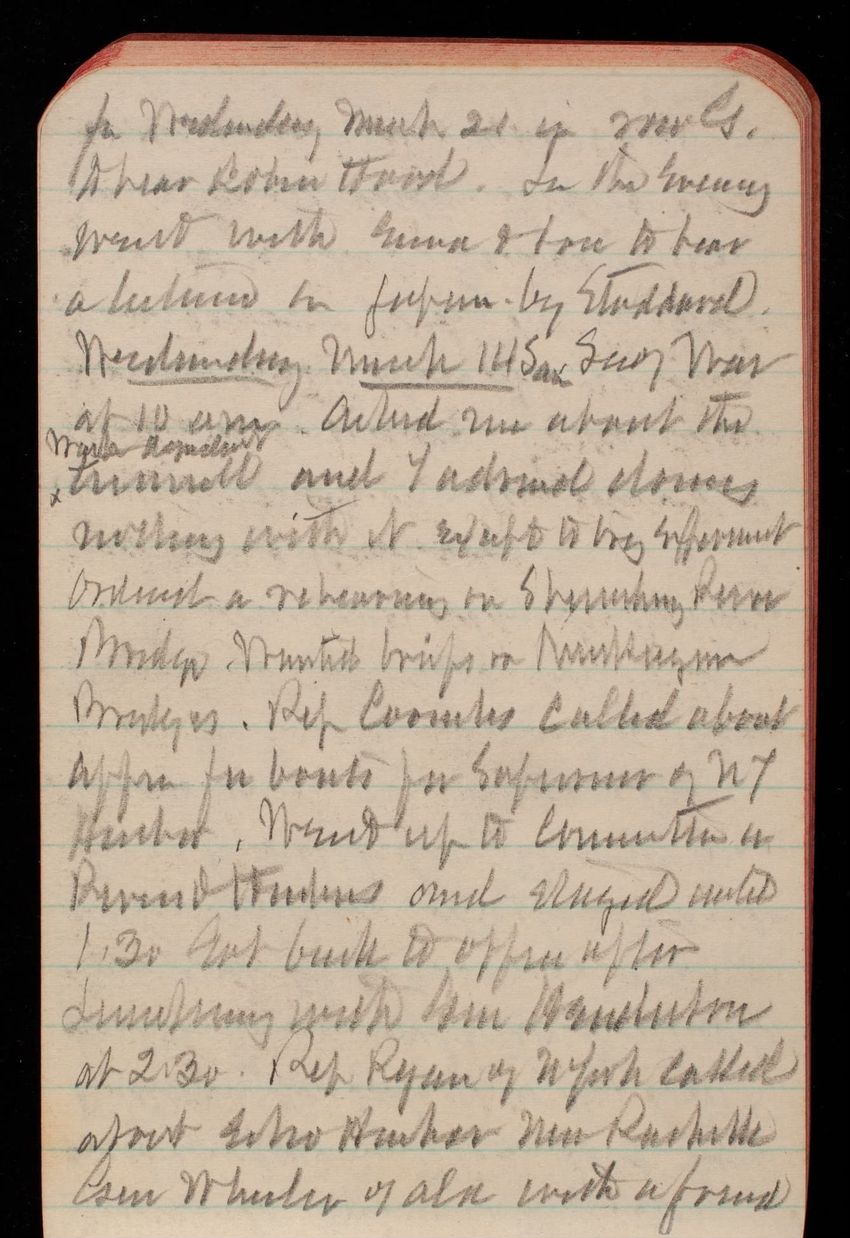 for Wednesday March 21 in row G.
to hear Robin Hood. In the Evening
went with Emma & to hear
a lecture on Japan by Stoddard.
Wednesday March 14 Saw Secy War
at 10 am. Asked me about the
and I advised doing
nothing with it except to
Ordered a rehearing on River
Bridge. Wanted briefs on Muskegon
Bridges. Rep Coombs called about
appn for boats for Supervisor of NY
Harbor. Went up to Committee on
Rivers & Harbors and staged until
1.30 Got back to office after
Lunching with Gen Henderson
at 2.30. Rep Ryan of N York called
about Echo Harbor New Rochelle
Gen Wheeler of Ala with a friend